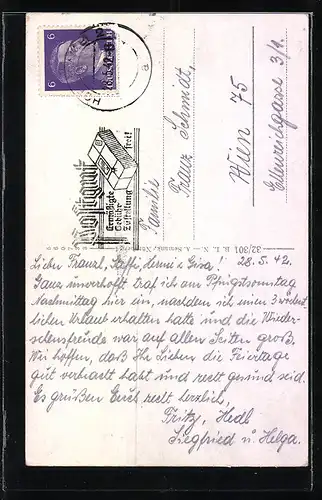 Familie
Franz Schmidt,
Wien 75
3/1.
Postgut
Ermäßigte
Gebühr
Zustellung frei!
6
6
32/301
Lieber Franzl, Steffi, Gisa! 28.5.42.
Ganz unverhofft traf ich am Pfingstsonntag
Nachmittag hier ein, nachdem ich einen 3 wöchent
lichen Urlaub erhalten hatte und die Wieder-
sehensfreude war auf allen Seiten groß.
Wir hoffen, daß Ihr Lieben die Feiertage
gut verbracht habt und recht gesund seid.
Es grüßen Euch recht herzlich,
Fritz, Hedl
Siegfried u. Helga.